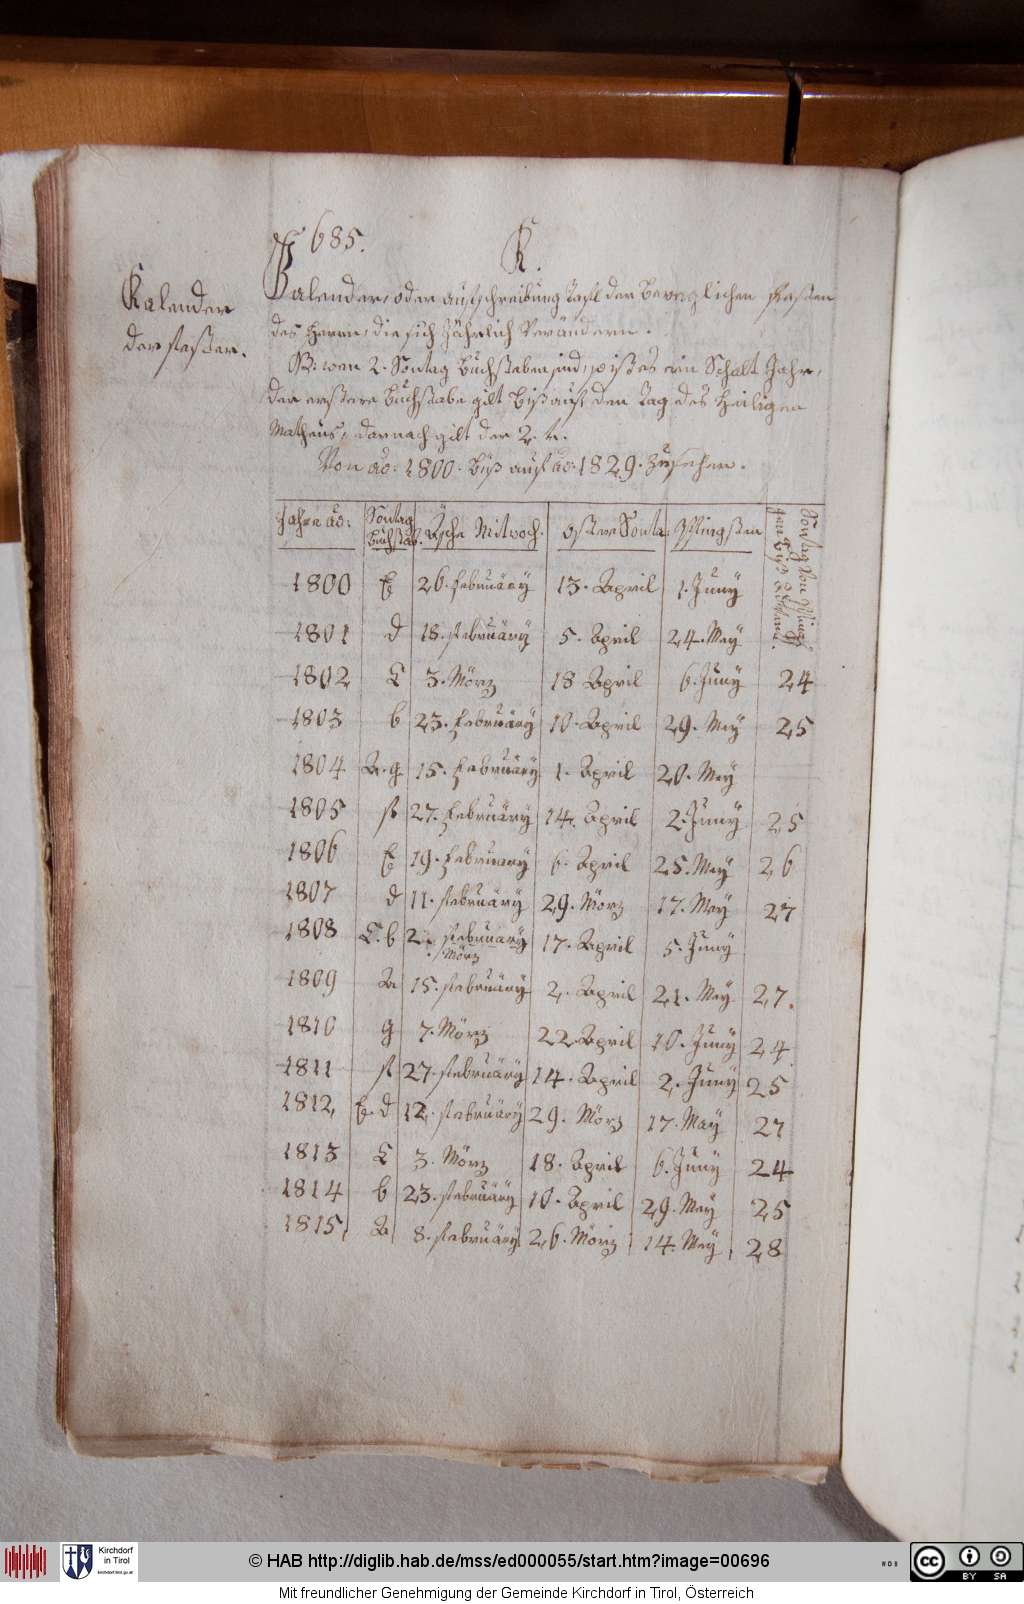 685.
K.
Kalender
der fester.
Kalender, oder aufschreibung Tafl der beweglichen festen
des Herrn, die sich Jährlich Verändern.
NB: wan 2. Sontag buchstaben sind, so ist es ein Schalt Jahr,
der erstere buchstabe gilt biß auf den Tag des Heiligen
Matheus, darnach gilt der 2.te.
Von ao: 1800. biß auf ao: 1829. zu sehen.
Jahre ao: Sontag buchstab. Äsche Mitwoch. oster Sonta: Pfingsten Sontag Von Pfingsten biß advent.
1800 E 26. february 13. April 1. Juny
1801 d 18. february 5. April 24. May
1802 C 3. Mörz 18 April 6. Juny 24
1803 b 23. february 10. April 29. May 25
1804 A. g 15. february 1. April 20. May
1805 f 27. february 14. April 2. Juny 25
1806 E 19. february 6. April 25. May 26
1807 d 11. february 29. Mörz 17. May 27
1808 C. b 2. february 17. April 5. Juny
Mörz
1809 A 15. february 2. April 21. May 27.
1810 g 7. Mörz 22 April 10. Juny 24
1811 f 27. february 14. April 2. Juny 25
1812 E. d 12. february 29. Mörz 17. May 27
1813 C 3. Mörz 18. April 6. Juny 24
1814 b 23. february 10. April 29. May 25
1815 A 8. february 26. Mörz 14. May 28
Kirchdorf
in Tirol
kirchdorf.tirol.gv.at
© HAB http://diglib.hab.de/mss/ed000055/start.htm?image=00696
WDB
cc BY SA
Mit freundlicher Genehmigung der Gemeinde Kirchdorf in Tirol, Österreich